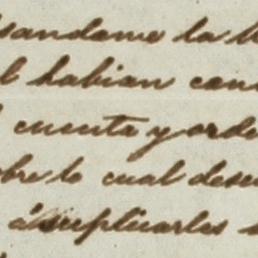 sandame la
l habian can
cuenta y orde
bre lo cual dese
á suplicarles